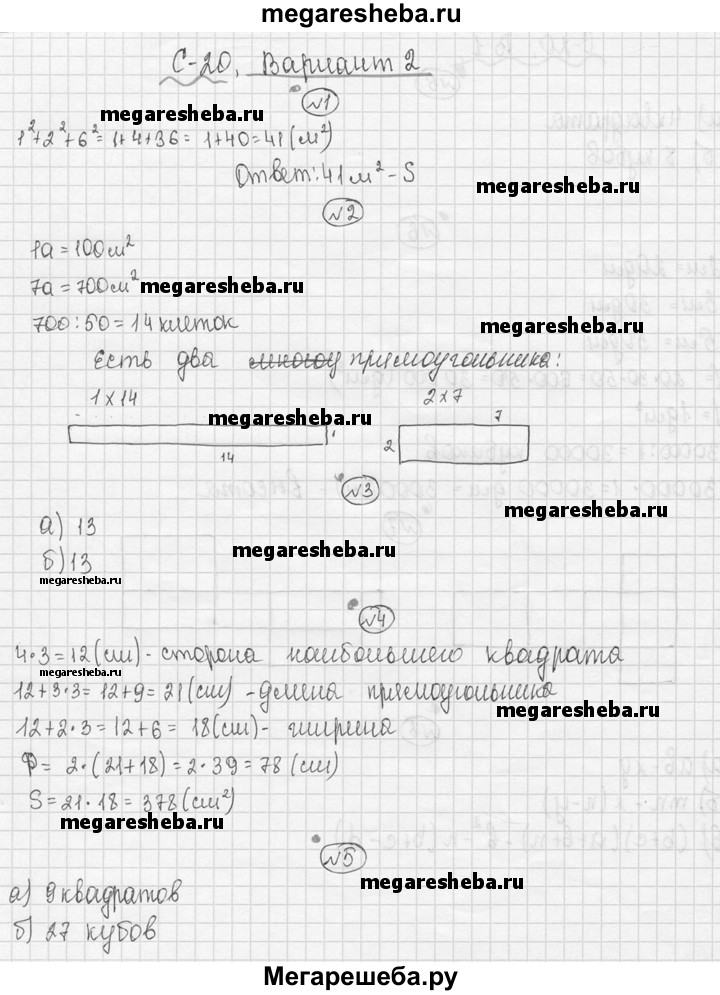 megaresheba.ru
С-20, Вариант 2
№1
megaresheba.ru
1²+2²+6²= 1+4+36= 1+40=41(м²)
Ответ: 41 м² - S
megaresheba.ru
№2
1а = 100 см²
7а = 700 см²
megaresheba.ru
700 : 50 = 14 клеток
megaresheba.ru
Есть два прямоугольника:
1 x 14
2 x 7
megaresheba.ru
7
1
2
14
№3
megaresheba.ru
а) 13
megaresheba.ru
б) 13
megaresheba.ru
№4
4·3=12(см) - сторона наибольшего квадрата
12+3·3= 12+9= 21(см) - длина прямоугольника
megaresheba.ru
12+2·3=12+6= 18(см) - ширина
P= 2·(21+18)=2·39=78 (см)
S=21·18=378(см²)
megaresheba.ru
№5
megaresheba.ru
а) 9 квадратов
б) 27 кубов
Мегарешеба.ру